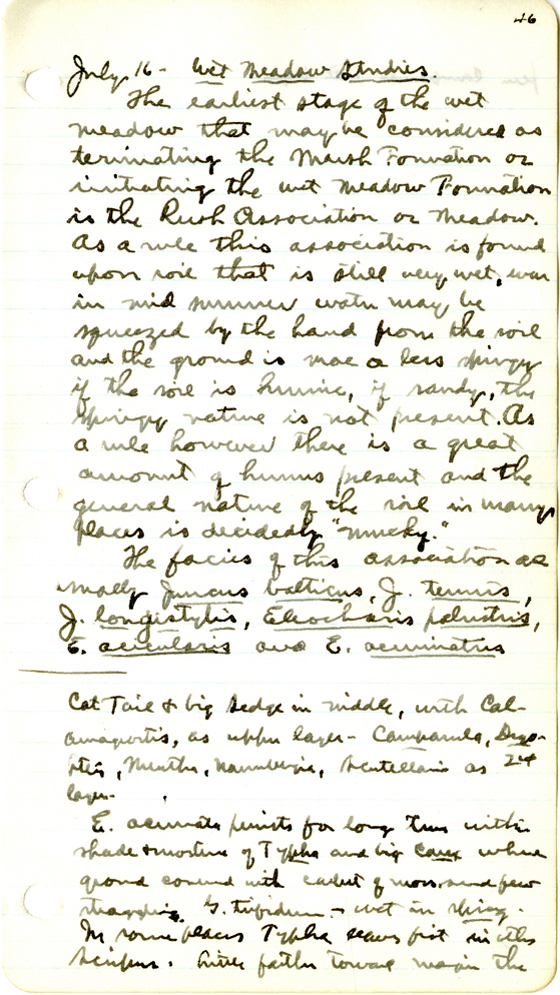 46
July 16 - Wet Meadow Studies.
The earliest stage of the wet
meadow that may be considered as
terminating the Marsh Formation or
initiating the wet Meadow Formation
is the Rush Association or Meadow.
As a rule this association is found
upon soil that is still very wet, even
in mid summer water may be
squeezed by the hand from the soil
and the ground is more or less springy
if the soil is humic, if sandy, the
springy nature is not present. As
a rule however there is a great
amount of humus present and the
general nature of the soil in many
places is decidedly "mucky."
The facies of this association are
usually Juncus balticus, J. tenuis,
J. longistylis, Eleocharis palustris,
E. acicularis and E. acuminatus
Cat Tail & big sedge in middle, with Cal-
amagrostis, as upper layer - Campanula, Dryo-
pteris, Mentha, Naumbergia, Scutellaria as 2nd
layer -
E. acuminata persists for long time within
shade & moisture of Typha and big Carex where
ground covered with carpet of moss and few
G. trifidum - wet in spring.
In some places Typha seems first in
Scirpus. farther toward the